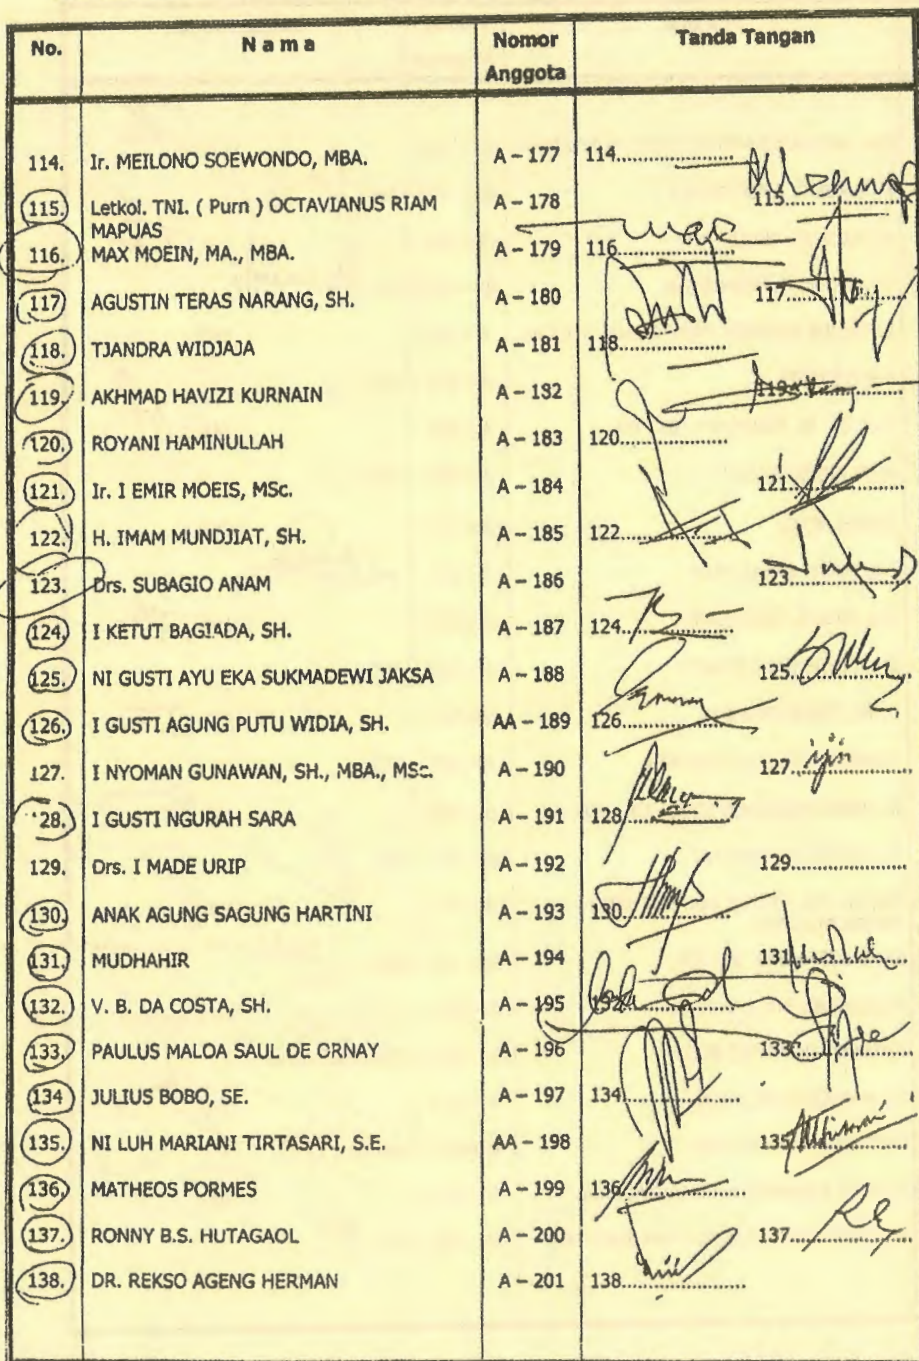 No. Nama Nomor Anggota Tanda Tangan
114. Ir. MEILONO SOEWONDO, MBA. A – 177 114.....................
115. Letkol. TNI. ( Purn ) OCTAVIANUS RIAM MAPUAS A – 178 115.....................
116. MAX MOEIN, MA., MBA. A – 179 116.....................
117 AGUSTIN TERAS NARANG, SH. A – 180 117.....................
118. TJANDRA WIDJAJA A – 181 118.....................
119. AKHMAD HAVIZI KURNAIN A – 132 119.....................
120. ROYANI HAMINULLAH A – 183 120.....................
121. Ir. I EMIR MOEIS, MSc. A – 184 121.....................
122. H. IMAM MUNDJIAT, SH. A – 185 122.....................
123. Drs. SUBAGIO ANAM A – 186 123.....................
124. I KETUT BAGIADA, SH. A – 187 124.....................
125. NI GUSTI AYU EKA SUKMADEWI JAKSA A – 188 125.....................
126. I GUSTI AGUNG PUTU WIDIA, SH. AA – 189 126.....................
127. I NYOMAN GUNAWAN, SH., MBA., MSc. A – 190 127. ijin
28. I GUSTI NGURAH SARA A – 191 128.....................
129. Drs. I MADE URIP A – 192 129.....................
130. ANAK AGUNG SAGUNG HARTINI A – 193 130.....................
131. MUDHAHIR A – 194 131.....................
132. V. B. DA COSTA, SH. A – 195 132.....................
133. PAULUS MALOA SAUL DE ORNAY A – 196 133.....................
134 JULIUS BOBO, SE. A – 197 134.....................
135. NI LUH MARIANI TIRTASARI, S.E. AA – 198 135.....................
136. MATHEOS PORMES A – 199 136.....................
137. RONNY B.S. HUTAGAOL A – 200 137.....................
138. DR. REKSO AGENG HERMAN A – 201 138.....................